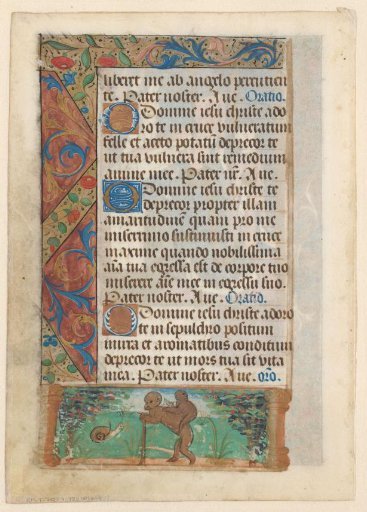 liberet me ab angelo percucien
te. Pater noster. Aue. Oratio.
O Domine iesu christe ado
ro te in cruce vulneratum
felle et aceto potatū deprecor te
ut tua vulnera sint remedium
anime mee. Pater nr̄. Aue.
O Domine iesu christe te
deprecor propter illam
amaritudinē quam pro me
miserrimo sustinuisti in cruce
maxime quando nobilissima
aīa tua egressa est de corpore tuo
miserere aīe mee in egressu suo.
Pater noster. Aue. Oratio.
O Domine iesu christe adoro
te in sepulchro positum
mirra et aromatibus conditum
deprecor te ut mors tua sit vita
mea. Pater noster. Aue. orō.